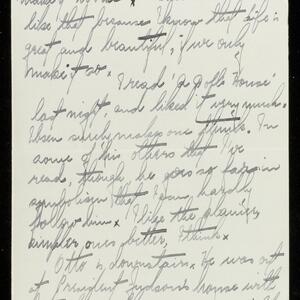 like that because I know that life is
great and beautiful, if we only
make it so.
I read 'A Doll's House'
last night, and liked it very much.
Ibsen surely makes one think. In
some of his others that I've
read, though, he goes so far in
symbolism that I can hardly
follow him. I like the plainer,
simpler ones better, I think.
Otto is downstairs. He was out
at President Judson's house with